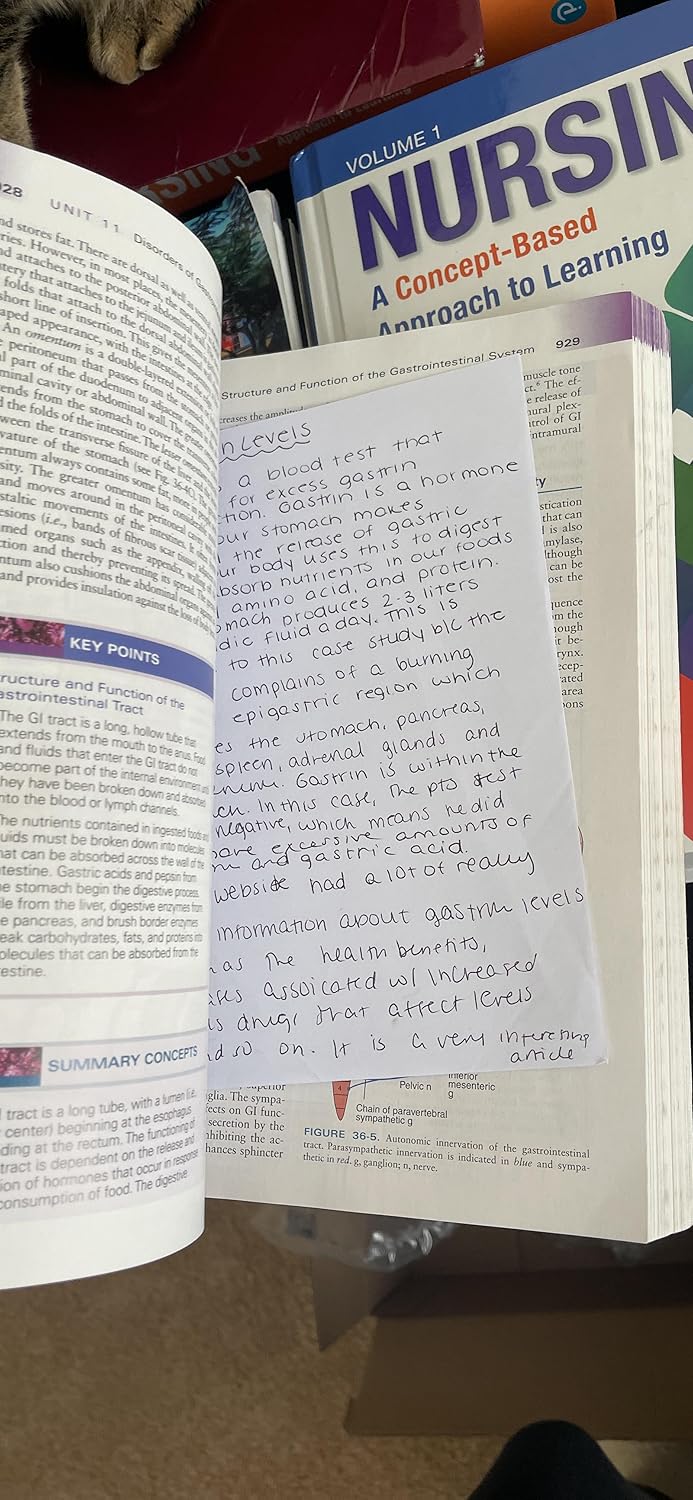 VOLUME 1
NURSIN
A Concept-Based
Approach to Learning
28 UNIT 11 Disorders of
nd stores fat. There are dorsal as well as
ries. However, in most places, the
nd attaches to the posterior abdominal
tery that attaches to the jejunum and
folds that attach to the dorsal abdominal
short line of insertion. This gives the
aped appearance, with the intestines at the
An omentum is a double-layered
peritoneum that passes from the stomach
l part of the duodenum to adjacent organs
minal cavity or abdominal wall. The greater
ends from the stomach to cover the transverse
d the folds of the intestine. The lesser omentum
ween the transverse fissure of the liver and the
vature of the stomach (see Fig. 36-4C).
entum always contains some fat,
sity. The greater omentum has
and moves around in the peritoneal cavity
staltic movements of the intestines. It
esions (i.e., bands of fibrous scar tissue)
med organs such as the appendix,
ction and thereby preventing its spread. The
ntum also cushions the abdominal organs
and provides insulation against the loss of body
KEY POINTS
ructure and Function of the
astrointestinal Tract
The GI tract is a long, hollow tube that
extends from the mouth to the anus. Food
and fluids that enter the GI tract do not
become part of the internal environment until
they have been broken down and absorbed
nto the blood or lymph channels.
he nutrients contained in ingested foods and
uids must be broken down into molecules
hat can be absorbed across the wall of the
testine. Gastric acids and pepsin from
e stomach begin the digestive process.
ile from the liver, digestive enzymes from
e pancreas, and brush border enzymes
eak carbohydrates, fats, and proteins into
olecules that can be absorbed from the
estine.
SUMMARY CONCEPTS
I tract is a long tube, with a lumen (i.e.
center) beginning at the esophagus
ding at the rectum. The functioning of
tract is dependent on the release and
ion of hormones that occur in response
consumption of food. The digestive
Structure and Function of the Gastrointestinal System 929
creases the
muscle tone
ct.6 The ef-
e release of
ural plex-
trol of GI
ntramural
n Levels
a blood test that
for excess gastrin
tion. Gastrin is a hormone
our stomach makes
the release of gastric
ur body uses this to digest
bsorb nutrients in our foods
amino acid, and protein.
omach produces 2-3 liters
dic fluid a day. This is
to this case study b/c the
complains of a burning
epigastric region which
es the stomach, pancreas,
spleen, adrenal glands and
enum. Gastrin is within the
ch. In this case, the pts test
negative, which means he did
have excessive amounts of
n and gastric acid.
webside had a lot of really
information about gastrin levels
as the health benefits,
ases assoicated w/ increased
ls drugs that affect levels
nd so on. It is a very interesting
article
ty
stication
that can
l is also
mylase,
though
can be
ost the
quence
m the
nough
it be-
rynx.
ecep-
ated
area
ons
superior
glia. The sympa-
ects on GI func-
secretion by the
hibiting the ac-
hances sphincter
4
Pelvic n
inferior
mesenteric
g
Chain of paravertebral
sympathetic g
FIGURE 36-5. Autonomic innervation of the gastrointestinal
tract. Parasympathetic innervation is indicated in blue and sympa-
thetic in red. g, ganglion; n, nerve.